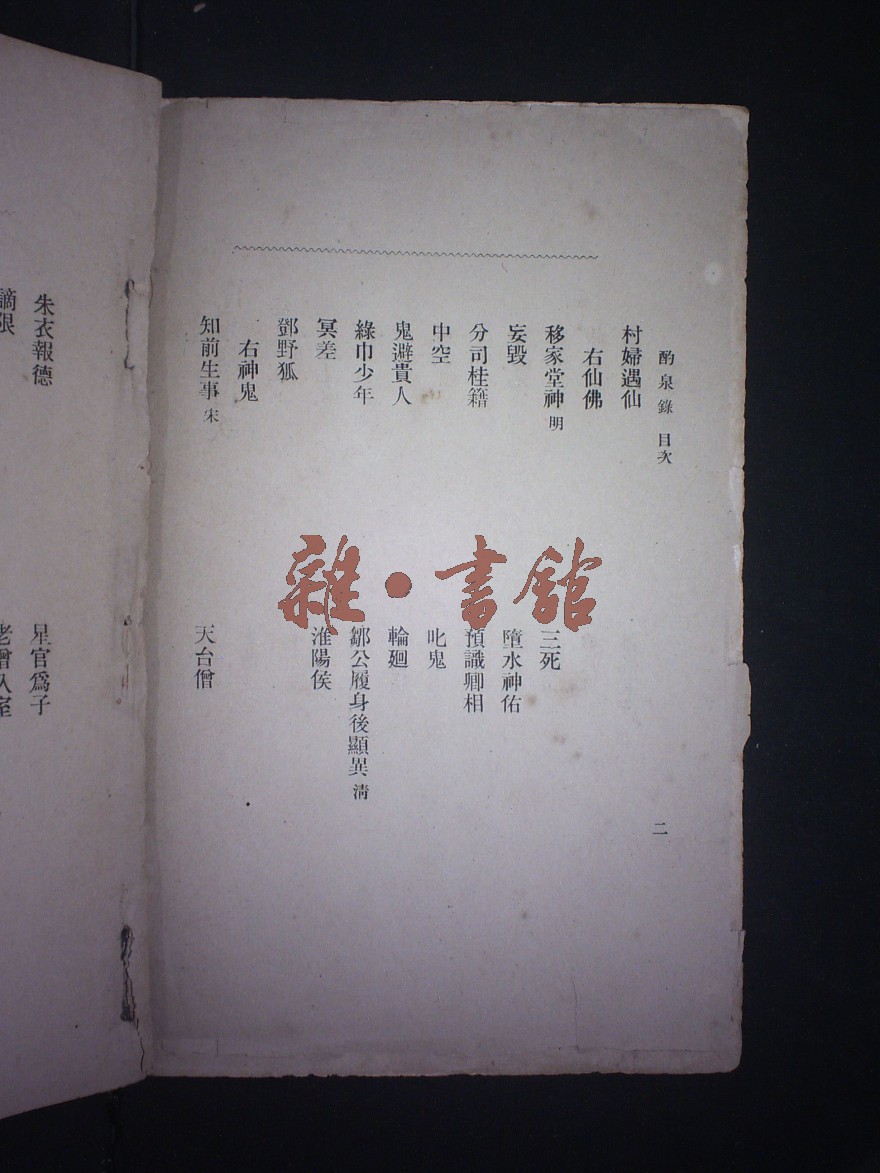 酌泉錄 目次
二
村婦遇仙
右仙佛
移家堂神 明
三死
妄毀
墮水神佑
分司桂籍
預識卿相
中空
叱鬼
鬼避貴人
輪廻
綠巾少年
鄒公履身後顯異 清
冥差
淮陽侯
鄧野狐
右神鬼
知前生事 宋
天台僧
朱衣報德
星官爲子
謫限
老僧入室
雜·書館